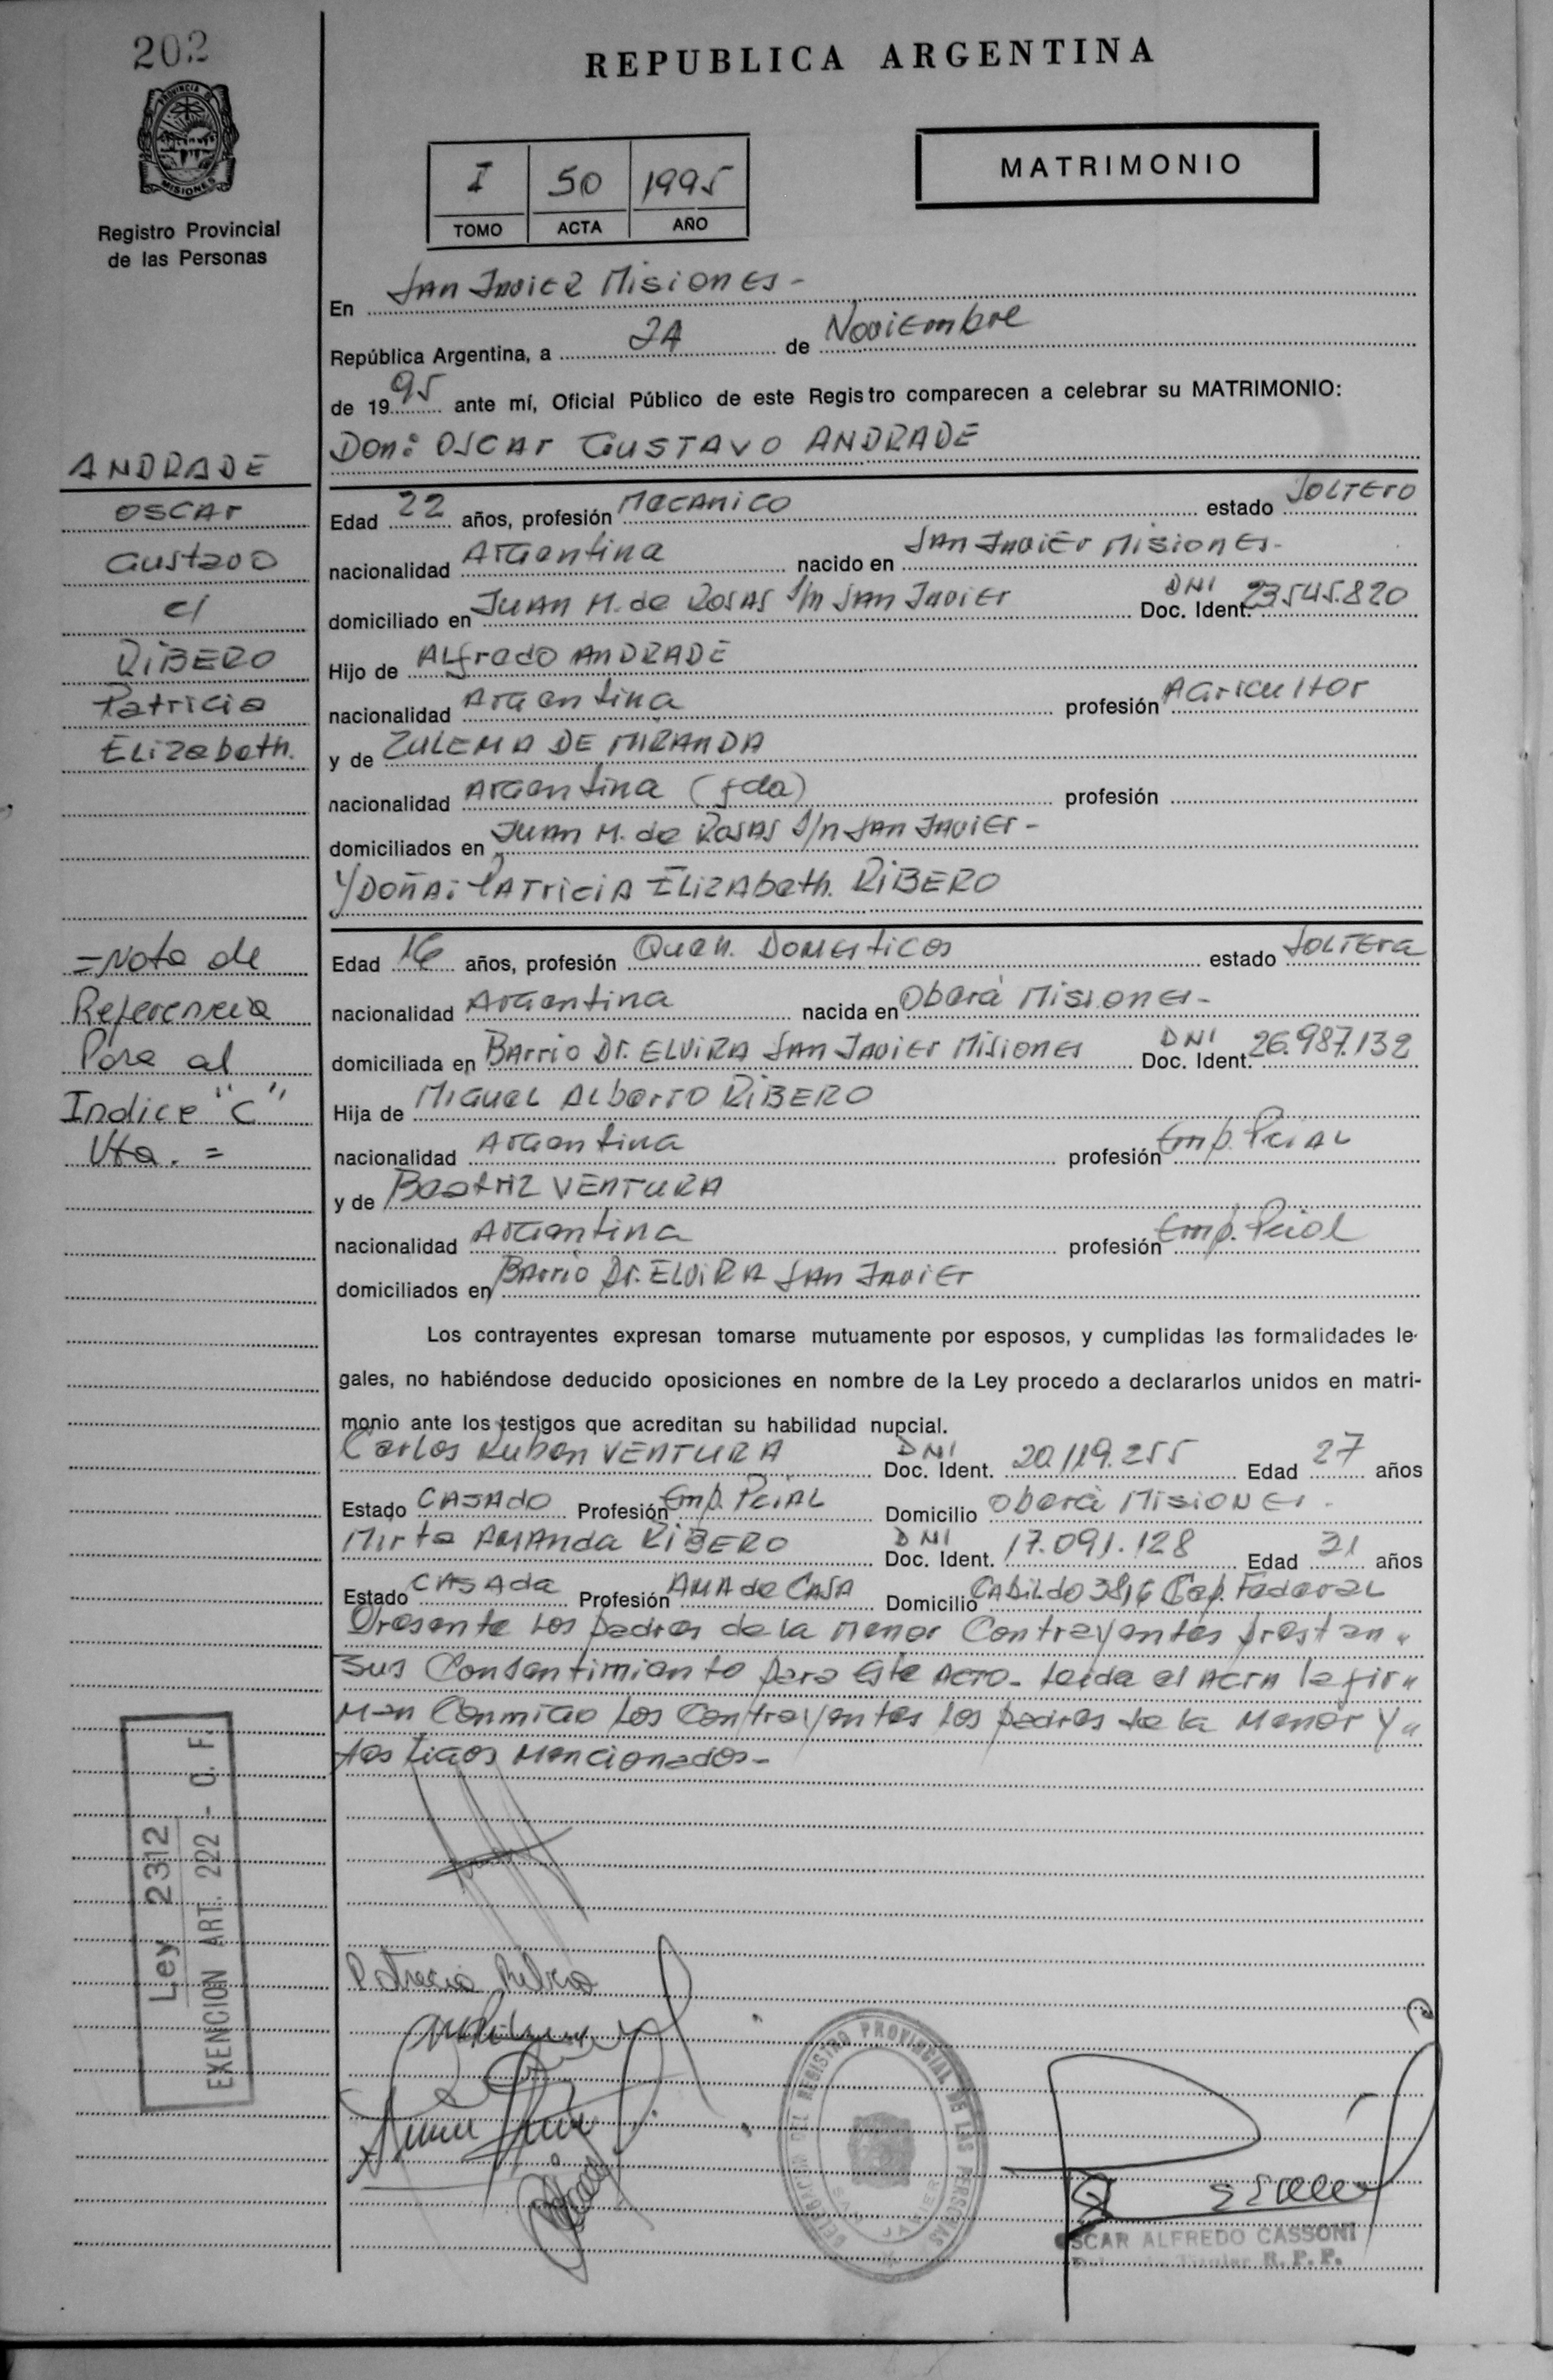 202
REPUBLICA ARGENTINA
PROVINCIA DE
MISIONES
Registro Provincial
de las Personas
I 50 1995
TOMO ACTA AÑO
MATRIMONIO
En San Javier Misiones -
República Argentina, a 24 de Noviembre
de 1995 ante mí, Oficial Público de este Registro comparecen a celebrar su MATRIMONIO:
Don: OSCAr GUSTAVO ANDRADE
ANDRADE
OSCAr
Gustavo
c/
RIBERO
Patricia
Elizabeth.
Edad 22 años, profesión Mecanico estado SOLTEro
nacionalidad Argentina nacido en San Javier Misiones-
domiciliado en Juan M. de Rosas S/n San Javier DNI Doc. Ident. 23545.820
Hijo de Alfredo ANDRADE
nacionalidad Argentina profesión Agricultor
y de ZULEMA DE MIRANDA
nacionalidad Argentina (fda) profesión
domiciliados en Juan M. de Rosas S/n San Javier-
Y DOÑA: PATriciA ELIZAbeth. RIBERO
=Nota de
Referencia
Para al
Indice "C"
Vta. =
Edad 16 años, profesión Queh. Domesticos estado SOLTEra
nacionalidad Argentina nacida en Oberá Misiones-
domiciliada en Barrio Dr. ELVIRA San Javier Misiones DNI Doc. Ident. 26.987.132
Hija de Miguel Alberto RIBERO
nacionalidad Argentina profesión Emp. Pcial
y de Beatriz VENTURA
nacionalidad Argentina profesión Emp. Pcial
domiciliados en Barrio Dr. ELVIRA San Javier
Los contrayentes expresan tomarse mutuamente por esposos, y cumplidas las formalidades le-
gales, no habiéndose deducido oposiciones en nombre de la Ley procedo a declararlos unidos en matri-
monio ante los testigos que acreditan su habilidad nupcial.
Carlos Ruben VENTURA DNI Doc. Ident. 20.119.255 Edad 27 años
Estado CASADO Profesión Emp. Pcial Domicilio Oberá Misiones.
Mirta Amanda RIBERO DNI Doc. Ident. 17.091.128 Edad 31 años
Estado CASAda Profesión AMA de CASA Domicilio CAbildo 3816 Cap. Federal
Presente los padres de la menor Contrayentes prestan
sus Consentimiento para este Acto- Leida el Acta la fir
man Conmigo los Contrayentes los padres de la Menor Y
testigos Mencionados-
Ley 2312
EXENCION ART. 222 - C. F.
Patricia Ribero
DELEGACION DEL REGISTRO PROVINCIAL DE LAS PERSONAS
SAN JAVIER
OSCAR ALFREDO CASSONI
R. P. P.